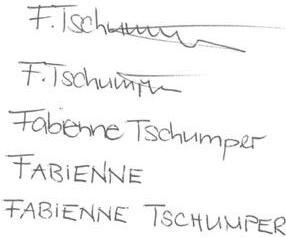 F. Tschumper
F. Tschumper
Fabienne Tschumper
FABiENNE
FABIENNE TSCHUMPER